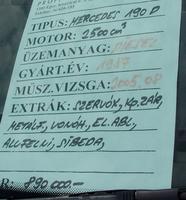 TIPUS: MERCEDES 190 D
MOTOR: 2500 cm³
ÜZEMANYAG: DIESEL
GYÁRT.ÉV: 1987
MŰSZ.VIZSGA: 2005.08
EXTRÁK: SZERVÓK, KP.ZÁR,
METÁLF, VONÓH., EL.ABL,
ALUFELNI, SZIBEDA,
R: 890000.-